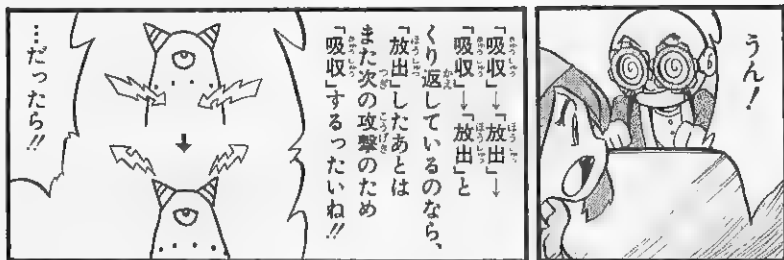 うん!
「吸収」→「放出」→
「吸収」→「放出」と
くり返しているのなら、
「放出」したあとは
また次の攻撃のため
「吸収」するったいね!!
…だったら!!